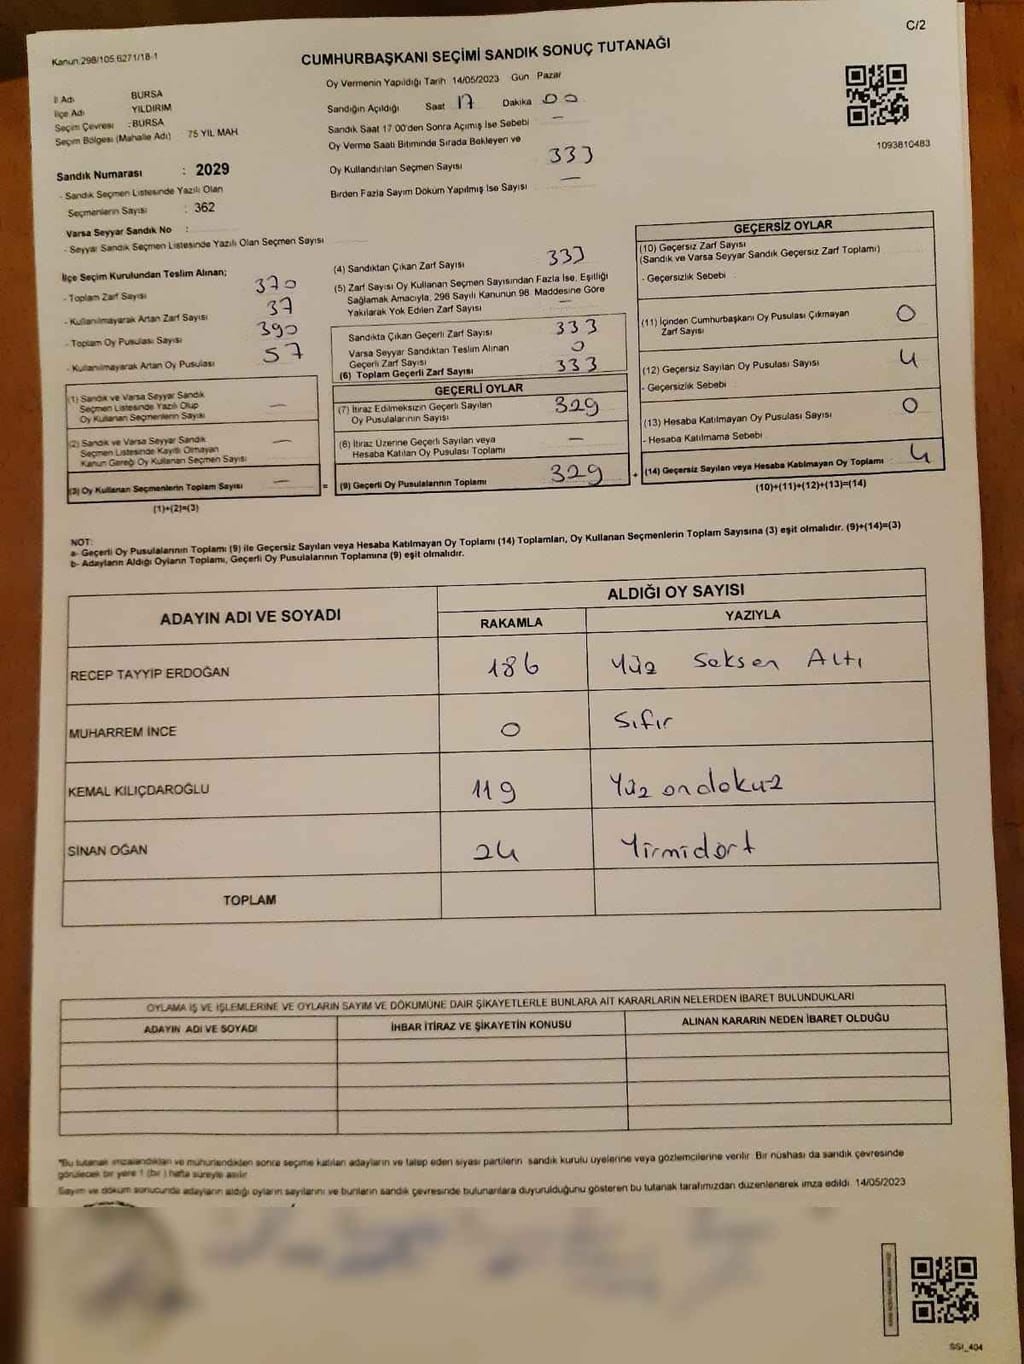 C/2
Kanun:298/105.6271/18-1
CUMHURBAŞKANI SEÇİMİ SANDIK SONUÇ TUTANAĞI
İl Adı BURSA
İlçe Adı YILDIRIM
Seçim Çevresi : BURSA
Seçim Bölgesi (Mahalle Adı) 75 YIL MAH
Sandık Numarası : 2029
- Sandık Seçmen Listesinde Yazılı Olan
Seçmenlerin Sayısı : 362
Varsa Seyyar Sandık No :
- Seyyar Sandık Seçmen Listesinde Yazılı Olan Seçmen Sayısı
Oy Vermenin Yapıldığı Tarih 14/05/2023 Gün Pazar
Sandığın Açıldığı Saat 17 Dakika 00
Sandık Saat 17:00'den Sonra Açımış İse Sebebi —
Oy Verme Saati Bitiminde Sırada Bekleyen ve
Oy Kullandırılan Seçmen Sayısı 333
Birden Fazla Sayım Döküm Yapılmış İse Sayısı —
1093810483
İlçe Seçim Kurulundan Teslim Alınan;
- Toplam Zarf Sayısı 370
- Kullanılmayarak Artan Zarf Sayısı 37
- Toplam Oy Pusulası Sayısı 390
- Kullanılmayarak Artan Oy Pusulası 57
(1) Sandık ve Varsa Seyyar Sandık
Seçmen Listesinde Yazılı Olup
Oy Kullanan Seçmenlerin Sayısı —
(2) Sandık ve Varsa Seyyar Sandık
Seçmen Listesinde Kayıtlı Olmayan
Kanun Gereği Oy Kullanan Seçmen Sayısı —
(3) Oy Kullanan Seçmenlerin Toplam Sayısı — =
(1)+(2)=(3)
(4) Sandıktan Çıkan Zarf Sayısı 333
(5) Zarf Sayısı Oy Kullanan Seçmen Sayısından Fazla İse, Eşitliği
Sağlamak Amacıyla, 298 Sayılı Kanunun 98. Maddesine Göre
Yakılarak Yok Edilen Zarf Sayısı —
Sandıkta Çıkan Geçerli Zarf Sayısı 333
Varsa Seyyar Sandıktan Teslim Alınan
Geçerli Zarf Sayısı 0
(6) Toplam Geçerli Zarf Sayısı 333
GEÇERLİ OYLAR
(7) İtiraz Edilmeksizin Geçerli Sayılan
Oy Pusulalarının Sayısı 329
(8) İtiraz Üzerine Geçerli Sayılan veya
Hesaba Katılan Oy Pusulası Toplamı —
(9) Geçerli Oy Pusulalarının Toplamı 329 +
GEÇERSİZ OYLAR
(10) Geçersiz Zarf Sayısı
(Sandık ve Varsa Seyyar Sandık Geçersiz Zarf Toplamı)
- Geçersizlik Sebebi
(11) İçinden Cumhurbaşkanı Oy Pusulası Çıkmayan
Zarf Sayısı 0
(12) Geçersiz Sayılan Oy Pusulası Sayısı 4
- Geçersizlik Sebebi
(13) Hesaba Katılmayan Oy Pusulası Sayısı 0
- Hesaba Katılmama Sebebi
(14) Geçersiz Sayılan veya Hesaba Katılmayan Oy Toplamı 4
(10)+(11)+(12)+(13)=(14)
NOT:
a- Geçerli Oy Pusulalarının Toplamı (9) ile Geçersiz Sayılan veya Hesaba Katılmayan Oy Toplamı (14) Toplamları, Oy Kullanan Seçmenlerin Toplam Sayısına (3) eşit olmalıdır. (9)+(14)=(3)
b- Adayların Aldığı Oyların Toplamı, Geçerli Oy Pusulalarının Toplamına (9) eşit olmalıdır.
ADAYIN ADI VE SOYADI ALDIĞI OY SAYISI
RAKAMLA YAZIYLA
RECEP TAYYİP ERDOĞAN 186 Yüz Seksen Altı
MUHARREM İNCE 0 Sıfır
KEMAL KILIÇDAROĞLU 119 Yüz ondokuz
SİNAN OĞAN 24 Yirmidört
TOPLAM
OYLAMA İŞ VE İŞLEMLERİNE VE OYLARIN SAYIM VE DÖKÜMÜNE DAİR ŞİKAYETLERLE BUNLARA AİT KARARLARIN NELERDEN İBARET BULUNDUKLARI
ADAYIN ADI VE SOYADI İHBAR İTİRAZ VE ŞİKAYETİN KONUSU ALINAN KARARIN NEDEN İBARET OLDUĞU
"Bu tutanak imzalandıktan ve mühürlendikten sonra seçime katılan adayların ve talep eden siyasi partilerin sandık kurulu üyelerine veya gözlemcilerine verilir. Bir nüshası da sandık çevresinde
görülecek bir yere 1 (bir) hafta süreyle asılır.
Sayım ve döküm sonucunda adayların aldığı oyların sayılarını ve bunların sandık çevresinde bulunanlara duyurulduğunu gösteren bu tutanak tarafımızdan düzenlenerek imza edildi. 14/05/2023
SSI_404